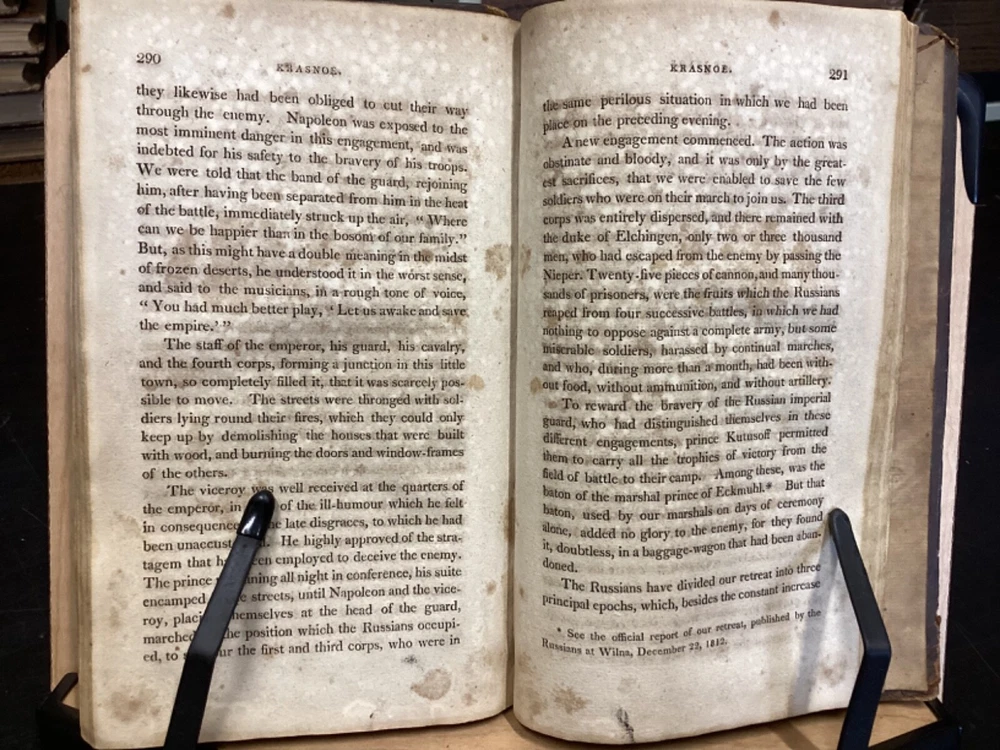 290
KRASNOE.
they likewise had been obliged to cut their way
through the enemy. Napoleon was exposed to the
most imminent danger in this engagement, and was
indebted for his safety to the bravery of his troops.
We were told that the band of the guard, rejoining
him, after having been separated from him in the heat
of the battle, immediately struck up the air, “ Where
can we be happier than in the bosom of our family.”
But, as this might have a double meaning in the midst
of frozen deserts, he understood it in the worst sense,
and said to the musicians, in a rough tone of voice,
“ You had much better play, ‘ Let us awake and save
the empire.’ ”
The staff of the emperor, his guard, his cavalry,
and the fourth corps, forming a junction in this little
town, so completely filled it, that it was scarcely pos-
sible to move. The streets were thronged with sol-
diers lying round their fires, which they could only
keep up by demolishing the houses that were built
with wood, and burning the doors and window-frames
of the others.
The viceroy was well received at the quarters of
the emperor, in of the ill-humour which he felt
in consequence late disgraces, to which he had
been He highly approved of the stra-
tagem that employed to deceive the enemy.
The prince all night in conference, his suite
encamped streets, until Napoleon and the vice-
roy, themselves at the head of the guard,
marched the position which the Russians occupi-
ed, to the first and third corps, who were in
KRASNOE.
291
the same perilous situation in which we had been
place on the preceding evening.
A new engagement commenced. The action was
obstinate and bloody, and it was only by the great-
est sacrifices, that we were enabled to save the few
soldiers who were on their march to join us. The third
corps was entirely dispersed, and there remained with
the duke of Elchingen, only two or three thousand
men, who had escaped from the enemy by passing the
Nieper. Twenty-five pieces of cannon, and many thou-
sands of prisoners, were the fruits which the Russians
reaped from four successive battles, in which we had
nothing to oppose against a complete army, but some
miserable soldiers, harassed by continual marches,
and who, during more than a month, had been with-
out food, without ammunition, and without artillery.
To reward the bravery of the Russian imperial
guard, who had distinguished themselves in these
different engagements, prince Kutusoff permitted
them to carry all the trophies of victory from the
field of battle to their camp. Among these, was the
baton of the marshal prince of Eckmuhl.* But that
baton, used by our marshals on days of ceremony
alone, added no glory to the enemy, for they found
it, doubtless, in a baggage-wagon that had been aban-
doned.
The Russians have divided our retreat into three
principal epochs, which, besides the constant increase
* See the official report of our retreat, published by the
Russians at Wilna, December 22, 1812.